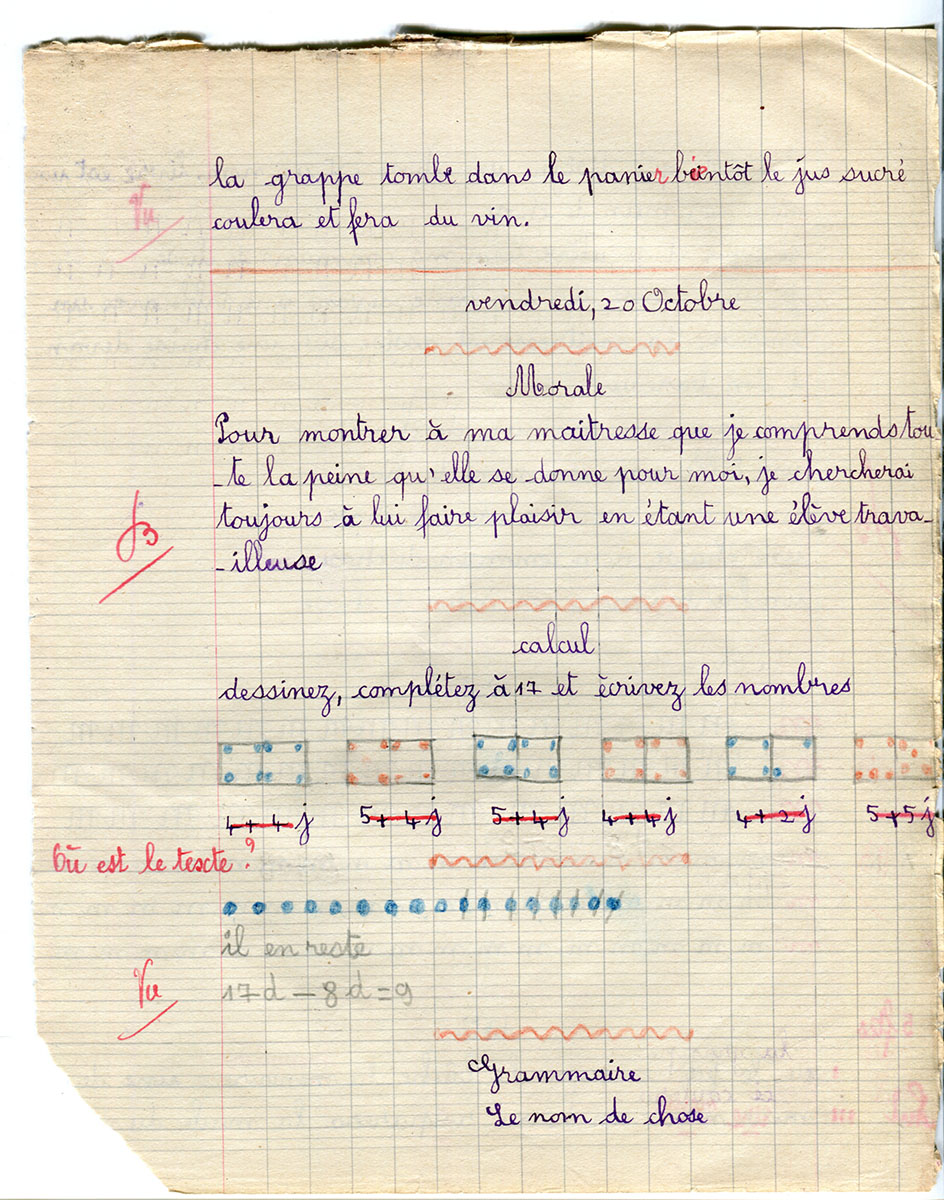 la grappe tombe dans le panier bientôt le jus sucré
Vu
coulera et fera du vin.
vendredi, 20 Octobre
Morale
Pour montrer à ma maitresse que je comprends tou
-te la peine qu'elle se donne pour moi, je chercherai
toujours à lui faire plaisir en étant une élève trava-
-illeuse
calcul
dessinez, complétez à 17 et écrivez les nombres
4+4 j 5+4 j 5+4 j 4+4 j 4+2 j 5+5 j
Où est le texcte ?
il en reste
17d - 8d = 9
Vu
Grammaire
Le nom de chose